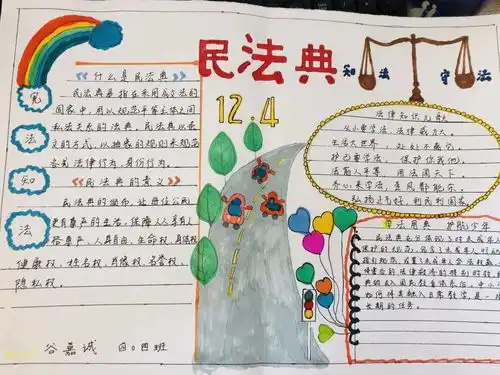 民法典
12.4
知法 守法
宪
法
知
法
《什么是民法典》
民法典是指在采用成文法的
国家中,用以规范平等主体之间
私法关系的法典。民法典以条
文的方式,以抽象的规则来规范
各式法律行为、身份行为。
《民法典的意义》
民法典的颁布,让每位公民
更有尊严的生活,保障人人享有人
格尊严,人身自由、生命权、身体权
健康权、姓名权、肖像权、名誉权、
隐私权。
谷嘉诚 四0四班
法律知识儿歌
从小要学法,法律威力大。
生活大世界,处处不离它。
护己要学法,保护你我他。
法前人平等,用法闯天下
齐心来学法,
弘扬正气好,利民利国家
学法用典 护航少年
民法典充分体现了对未成年人
长期的任务。